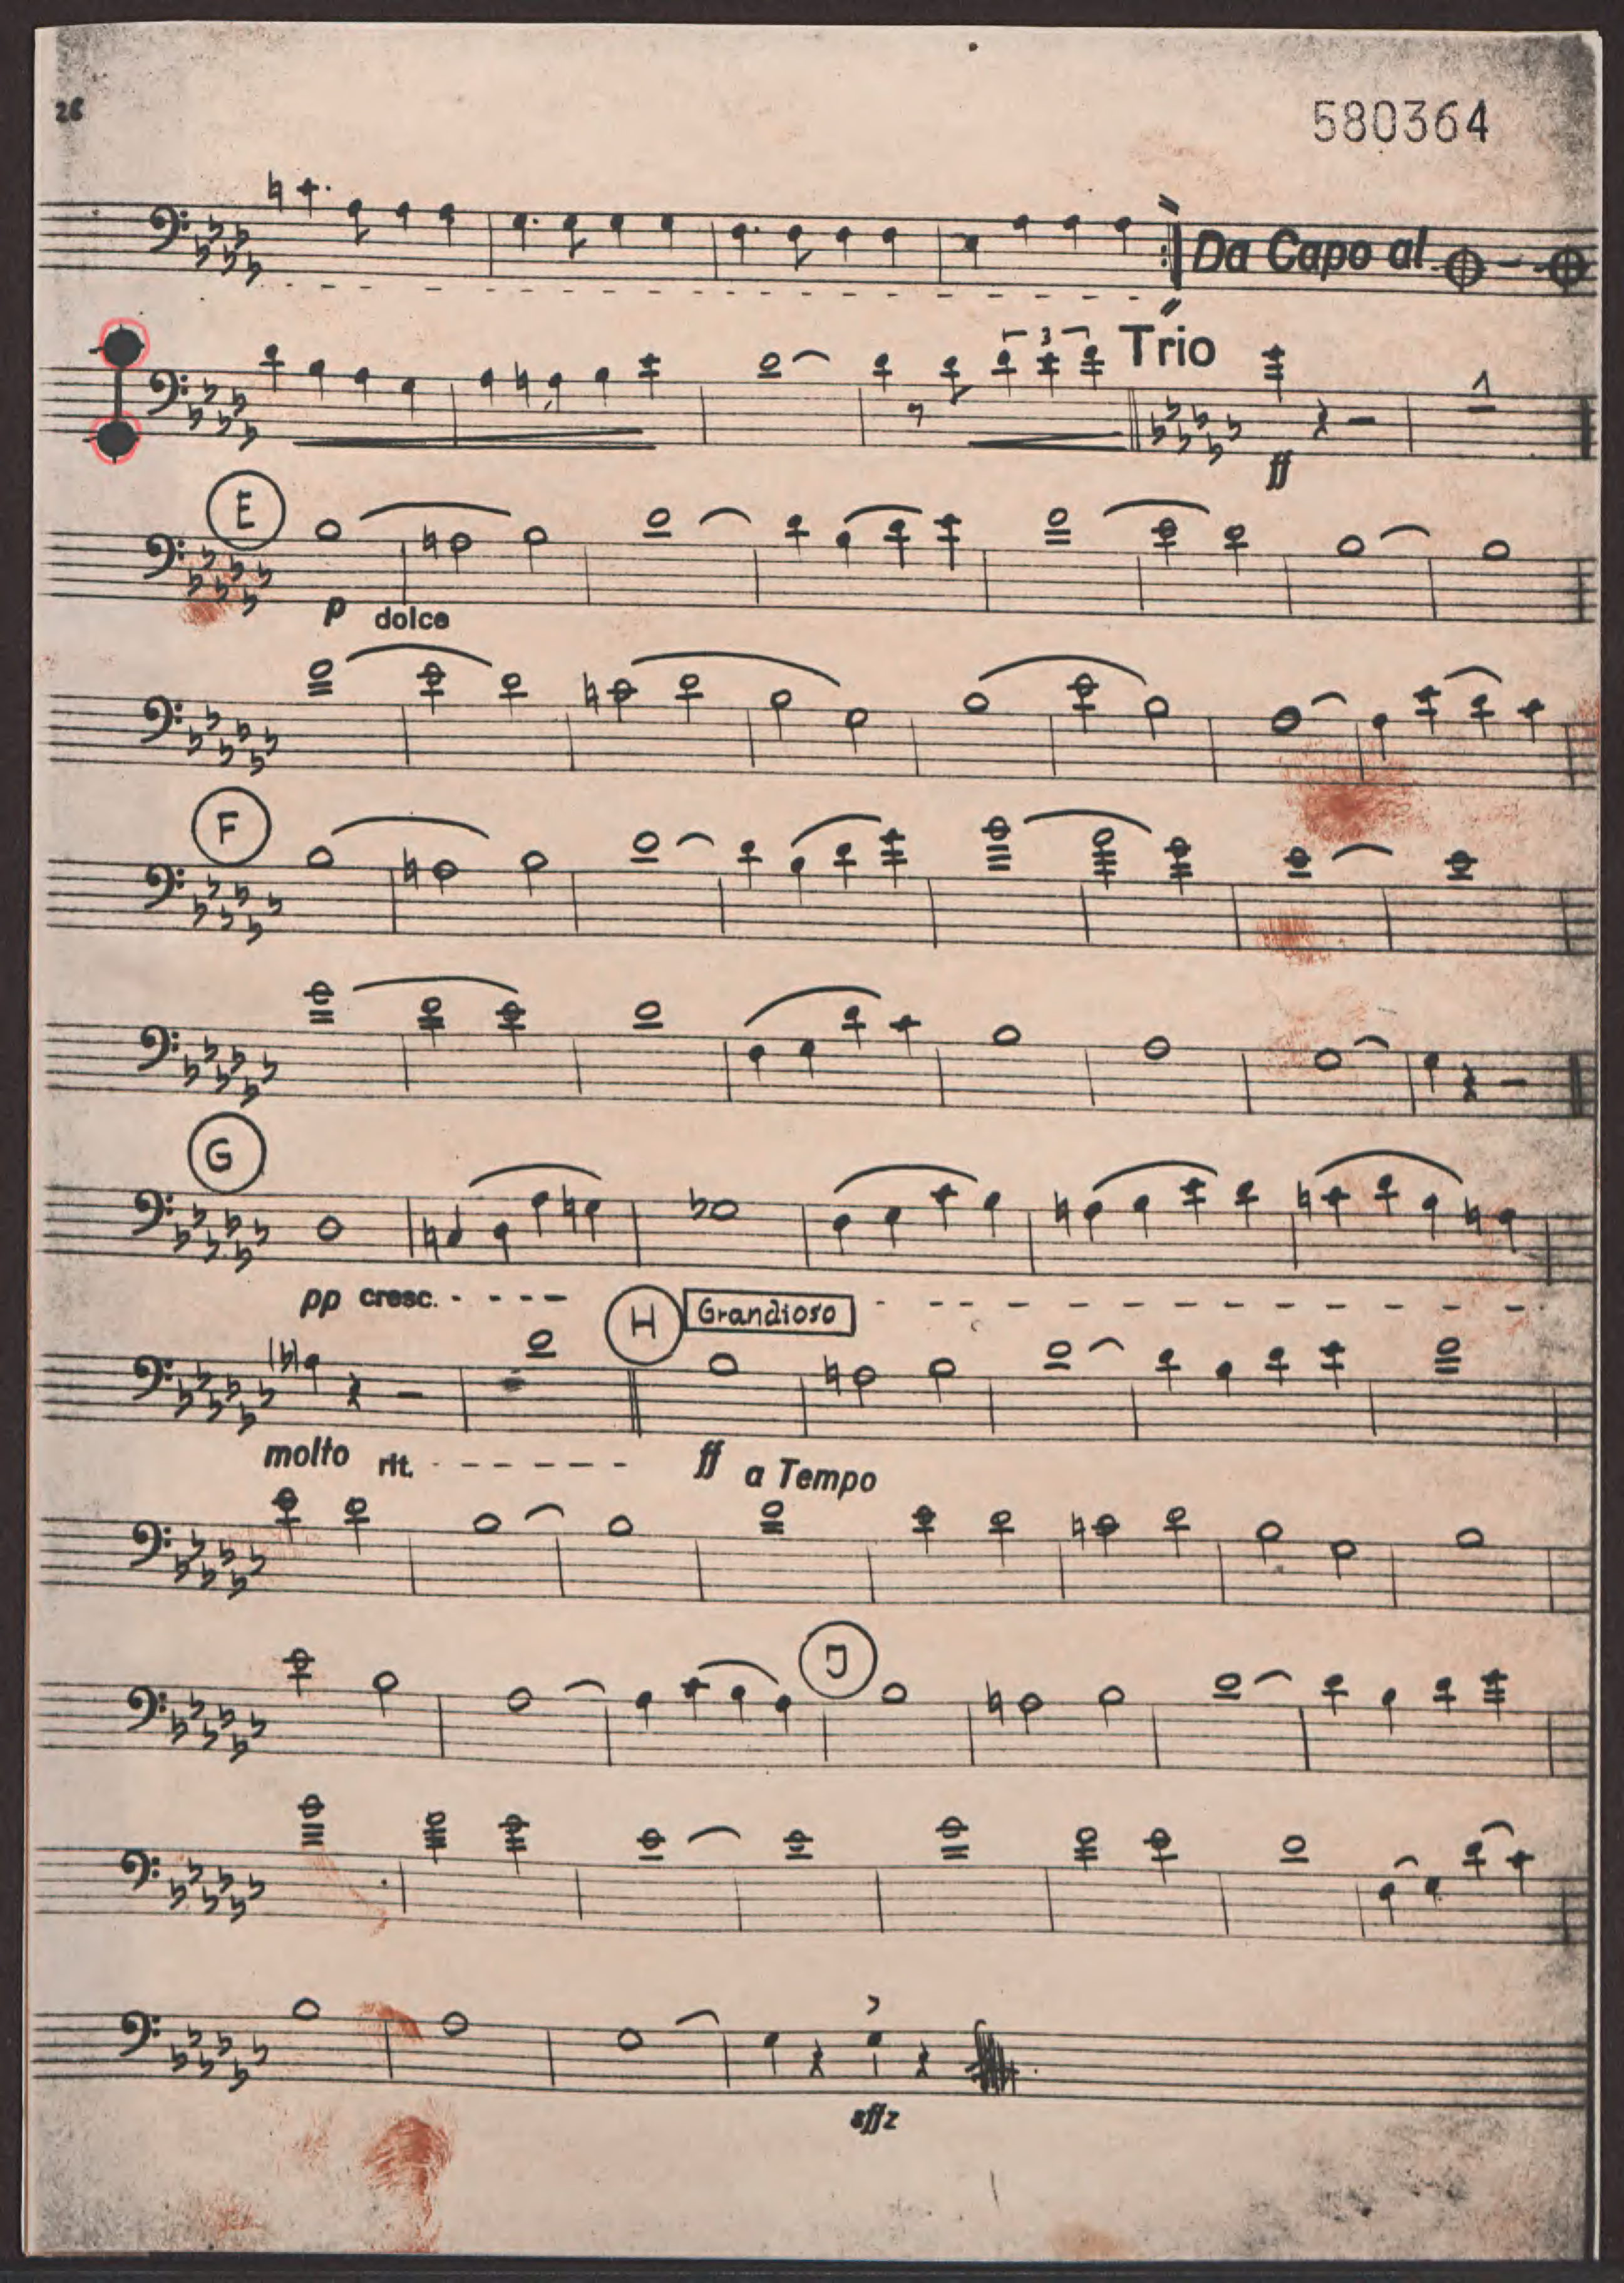 26
580364
Da Capo al
3
Trio
ff
E
p dolce
F
G
pp cresc.
H Grandioso
molto rit.
ff a Tempo
J
sffz